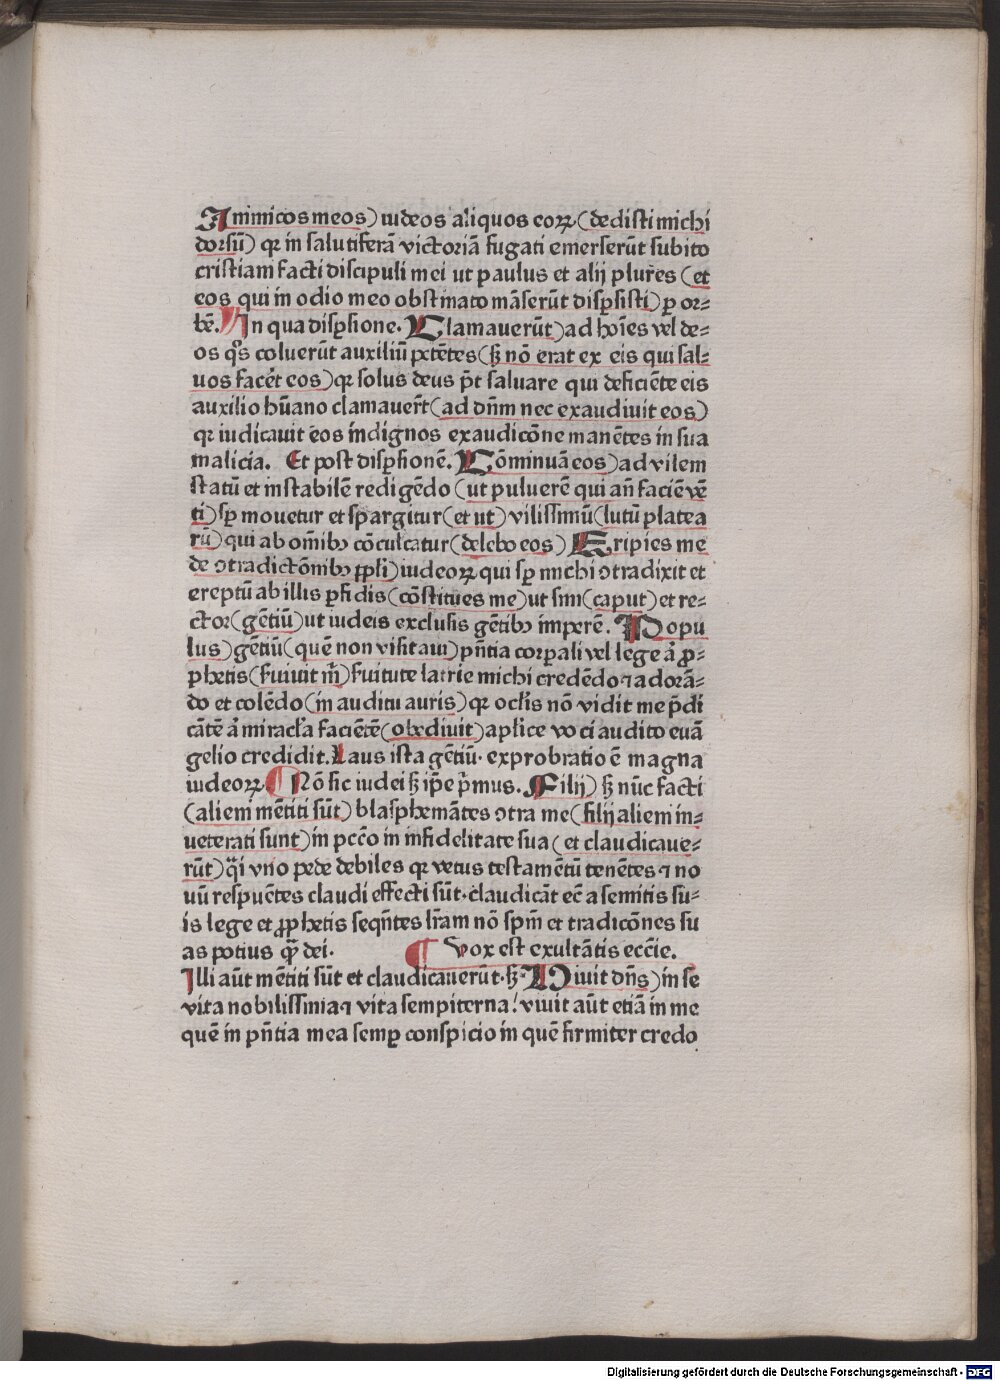 Inimicos meos) iudeos aliquos eoꝝ (dedisti michi
dorsū) qꝛ in salutiferā victoriā fugati emerserūt subito
cristiam facti discipuli mei ut paulus et alij plures (et
eos qui in odio meo obstinato māserūt disꝑsisti) ꝑ or⸗
bē. In qua disꝑsione. Clamauerūt) ad hoīes vel de⸗
os qͦs coluerūt auxiliū petētes (sꝫ nō erat ex eis qui sal⸗
uos facēt eos) qꝛ solus deus pt̄ saluare qui deficiēte eis
auxilio hūano clamauer̄t (ad dn̄m nec exaudiuit eos)
qꝛ iudicauit eos indignos exaudicōne manētes in sua
malicia. Et post disꝑsionē. Cōminuā eos) ad vilem
statū et instabilē redigēdo (ut puluerē qui an̄ faciē vē
ti) sꝑ mouetur et spargitur (et ut) vilissimū (lutū platea
rū) qui ab om̄ibꝰ cōculcatur (delebo eos) Eripies me
de ↄtradictōnibꝰ ppl̄i) iudeoꝝ qui sꝑ michi ↄtradixit et
ereptū ab illis ꝑfidis (cōstitues me) ut sim (caput) et re⸗
ctor (gētiū) ut iudeis exclusis gētibꝰ imperē. Popu
lus) gētiū (quē non visitaui) pn̄tia corꝑali vel lege aͥ ꝓ⸗
phetis (ſuiuit m̄) ſuitute latrie michi credēdo ⁊ adorā⸗
do et colēdo (in auditu auris) qꝛ oclis nō vidit me p̄di
cātē aͥ miracl'a faciētē (obediuit) aplice voci audito euā
gelio credidit. Laus ista gētiū. exprobratio ē magna
iudeoꝝ. Nō sic iudei sꝫ ip̄e pͥmus. Filij) sꝫ nūc facti
(alieni mētiti sūt) blasphemātes ↄtra me (filij alieni in⸗
ueterati sunt) in pcc̄o in infidelitate sua (et claudicaue⸗
rūt) qͣsi vno pede debiles qꝛ vetus testamētū tenētes ⁊ no
uū respuētes claudi effecti sūt. claudicāt ec̄ a semitis su⸗
is lege et ꝓphetis seqn̄tes lr̄am nō spm̄ et tradicōnes su
as potius qͣ̄ dei. Vox est exultātis eccīe.
Illi aūt mētiti sūt et claudicauerūt. sꝫ. Viuit dn̄s) in se
vita nobilissima ⁊ vita sempiterna! viuit aūt etiā in me
quē in pn̄tia mea semꝑ conspicio in quē firmiter credo
Digitalisierung gefördert durch die Deutsche Forschungsgemeinschaft - DFG